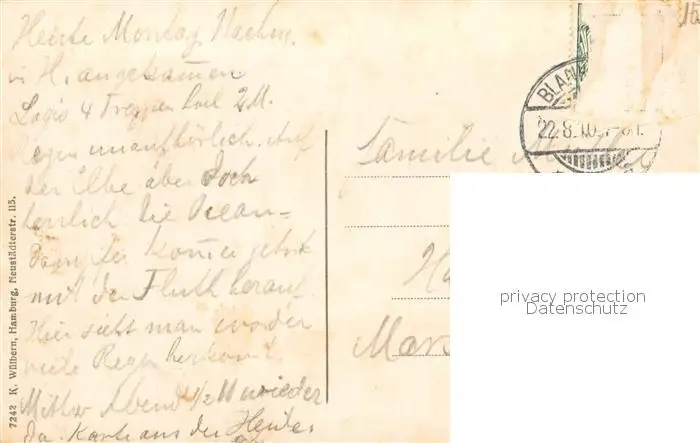 Heute Montag Nachm.
in H. angekommen
Logis 4 Treppen hoch 2 M.
Regen unaufhörlich. Auf
der Elbe aber doch
herrlich die Ocean-
dampfer
mit der Fluth herauf
Hier sieht man wo der
viele Regen herkomt.
Mittw Abend 1/2 11 wieder
da. Karte aus der
7242 K. Wülbern, Hamburg, Neustädterstr. 115.
BLAN
22.8.10.
Familie
privacy protection
Datenschutz